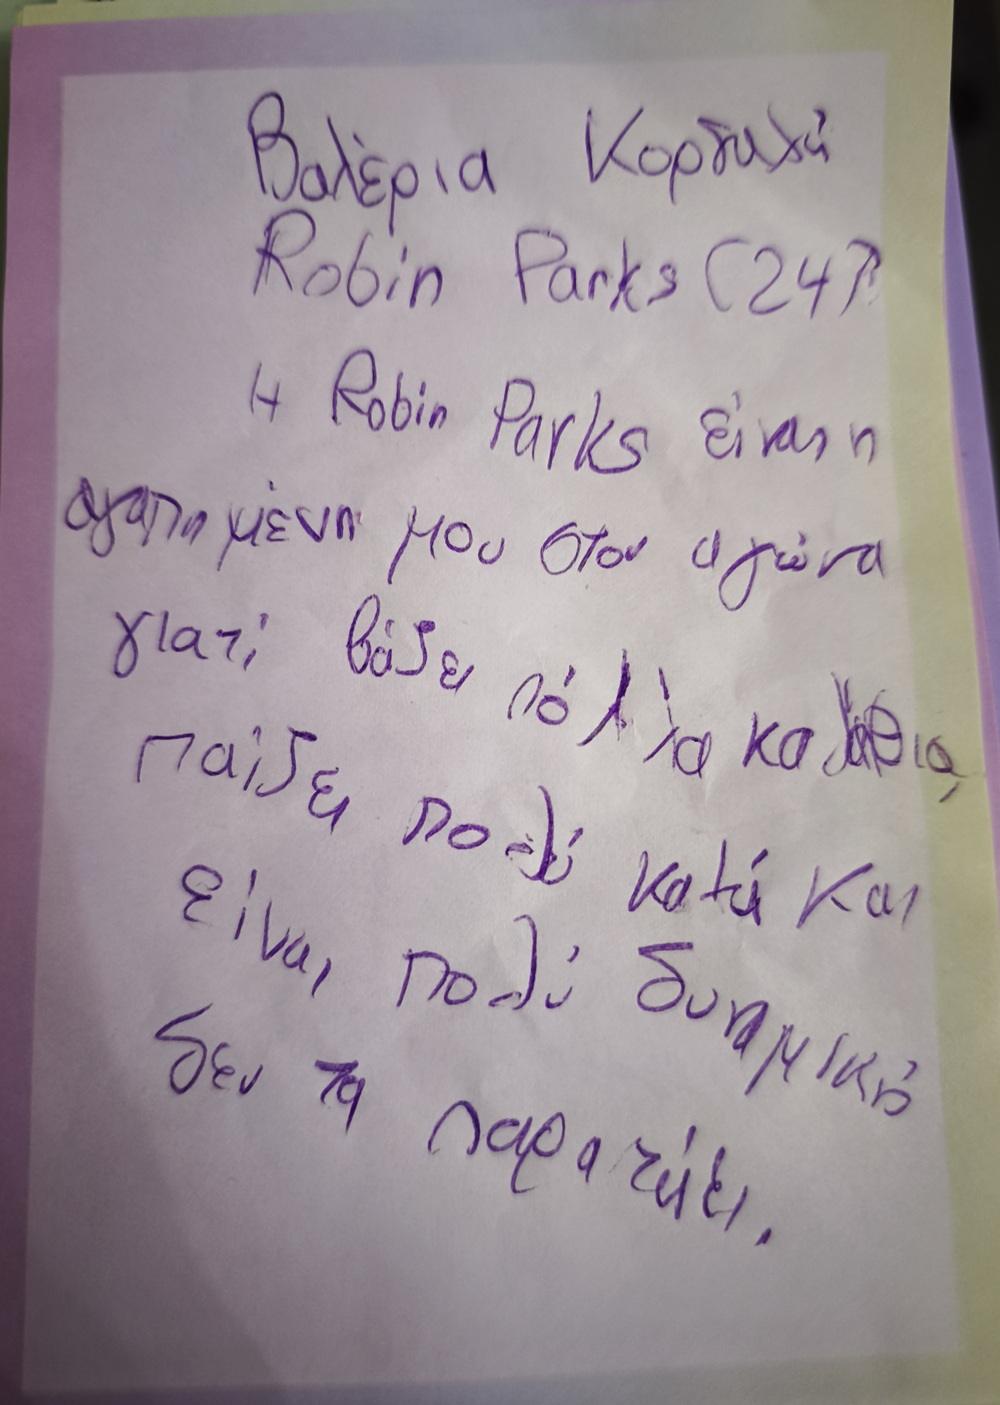 Βαλέρια
Robin Parks (24)
Η Robin Parks είναι η
αγαπημένη μου στον αγώνα
γιατί βάζει πόλλα καλάθια,
παίζει πολύ κατά και
είναι πολύ δυναμικό
δεν τα παρατάει.